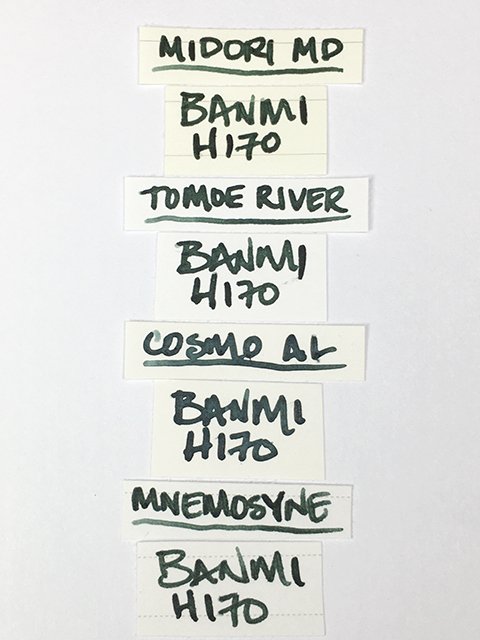 MIDORI MD
BANMI
H170
TOMOE RIVER
BANMI
H170
COSMO AL
BANMI
H170
MNEMOSYNE
BANMI
H170